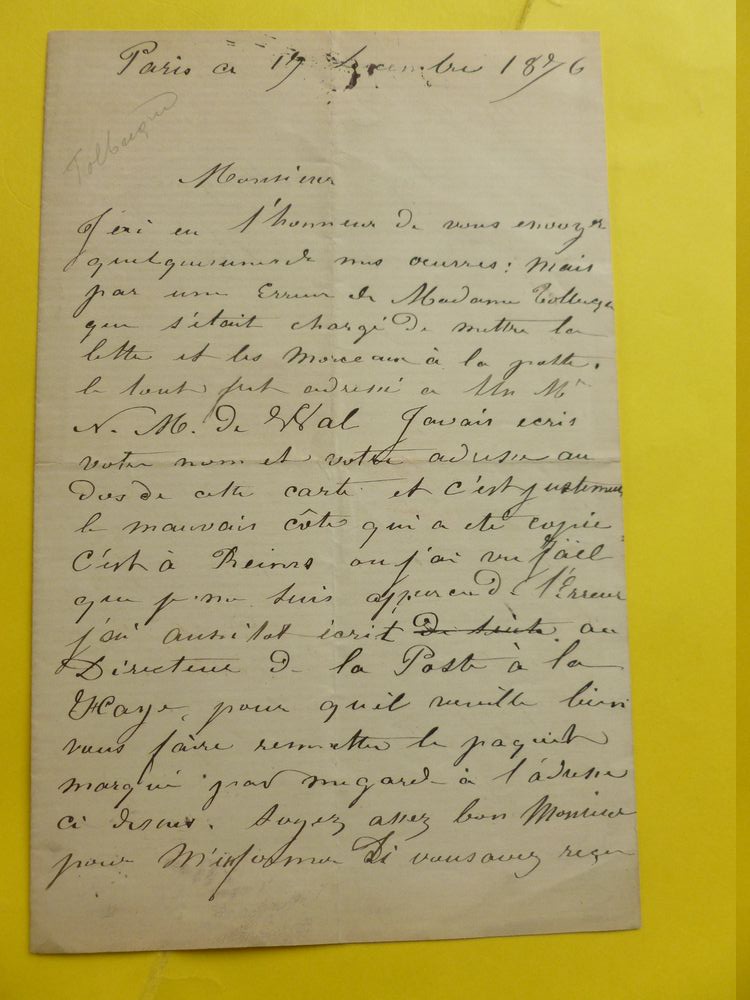 Paris ce 17 Decembre 1876
Tolbecque
Monsieur
J'ai eu l'honneur de vous envoyer
quelquesunes de mes oeuvres: mais
par une Erreur de Madame Tolbecque
qui s'était chargé de mettre la
lettre et les Morceaux à la poste.
le tout fut adressé a Un Mr
N. M. de Wal J'avais ecris
votre nom et votre adresse au
dos de cette carte et c'est justement
le mauvais côte qui a eté copié
C'est à Reims ou j'ai vu Jäell
que je me suis apperçu de l'Erreur
j'ai aussitot écrit de suite au
Directeur de la Poste à la
Haye, pour qu'il veuille bien
vous faire remettre le paquet
marqué par megarde à l'adresse
ci dessus. Soyez assez bon Monsieur
pour M'informer Si vous avez reçu